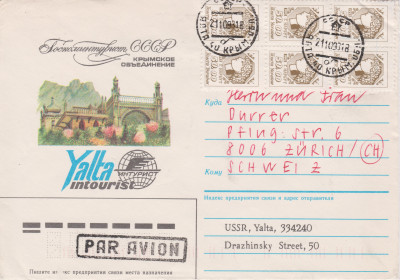 Госкоминтурист СССР
КРЫМСКОЕ
ОБЪЕДИНЕНИЕ
Yalta
intourist
ИНТУРИСТ
PAR AVION
Пишите индекс предприятия связи места назначения
21109318
21109318
Куда
Herrn und Frau
Durrer
Pfing str. 6
8006 ZÜRICH/(CH)
Кому
SCHWEIZ
Индекс предприятия связи и адрес отправителя
USSR, Yalta, 334240
Drazhinsky Street, 50